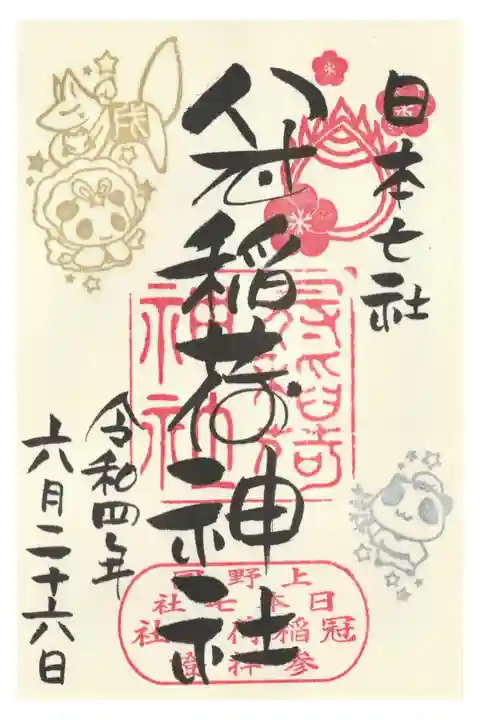 日本七社
冠稲荷神社
令和四年
六月二十六日
冠稲荷
神社
上野國
日本七社
冠稲荷神社
参拝